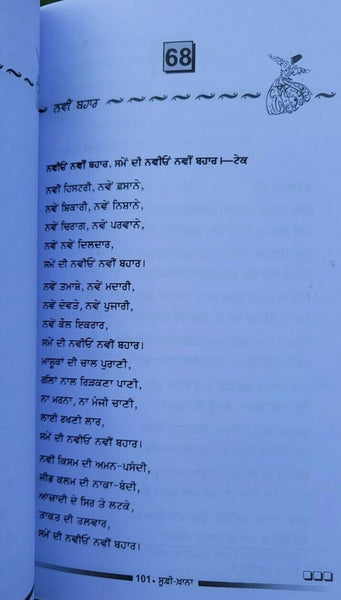 68
ਨਵੀਂ ਬਹਾਰ
ਨਵੀਓਂ ਨਵੀਂ ਬਹਾਰ, ਸਮੇਂ ਦੀ ਨਵੀਓਂ ਨਵੀਂ ਬਹਾਰ।—ਟੇਕ
ਨਵੀਂ ਹਿਸਟਰੀ, ਨਵੇਂ ਫ਼ਸਾਨੇ,
ਨਵੇਂ ਸ਼ਿਕਾਰੀ, ਨਵੇਂ ਨਿਸ਼ਾਨੇ,
ਨਵੇਂ ਚਿਰਾਗ, ਨਵੇਂ ਪਰਵਾਨੇ,
ਨਵੇਂ ਨਵੇਂ ਦਿਲਦਾਰ,
ਸਮੇਂ ਦੀ ਨਵੀਓਂ ਨਵੀਂ ਬਹਾਰ।
ਨਵੇਂ ਤਮਾਸ਼ੇ, ਨਵੇਂ ਮਦਾਰੀ,
ਨਵੇਂ ਦੇਵਤੇ, ਨਵੇਂ ਪੁਜਾਰੀ,
ਨਵੇਂ ਕੌਲ ਇਕਰਾਰ,
ਸਮੇਂ ਦੀ ਨਵੀਓਂ ਨਵੀਂ ਬਹਾਰ।
ਮਾਸ਼ੂਕਾਂ ਦੀ ਚਾਲ ਪੁਰਾਣੀ,
ਗੱਲਾਂ ਨਾਲ ਰਿੜਕਣਾ ਪਾਣੀ,
ਨਾ ਮਰਨਾ, ਨਾ ਮੰਜੀ ਚਾਣੀ,
ਲਾਈ ਰਖਣੀ ਲਾਰ,
ਸਮੇਂ ਦੀ ਨਵੀਓਂ ਨਵੀਂ ਬਹਾਰ।
ਨਵੀਂ ਕਿਸਮ ਦੀ ਅਮਨ-ਪਸੰਦੀ,
ਜੀਭ ਕਲਮ ਦੀ ਨਾਕਾ-ਬੰਦੀ,
ਆਜ਼ਾਦੀ ਦੇ ਸਿਰ ਤੇ ਲਟਕੇ,
ਤਾਕਤ ਦੀ ਤਲਵਾਰ,
ਸਮੇਂ ਦੀ ਨਵੀਓਂ ਨਵੀਂ ਬਹਾਰ।
101 • ਸੂਫ਼ੀ-ਖ਼ਾਨਾ